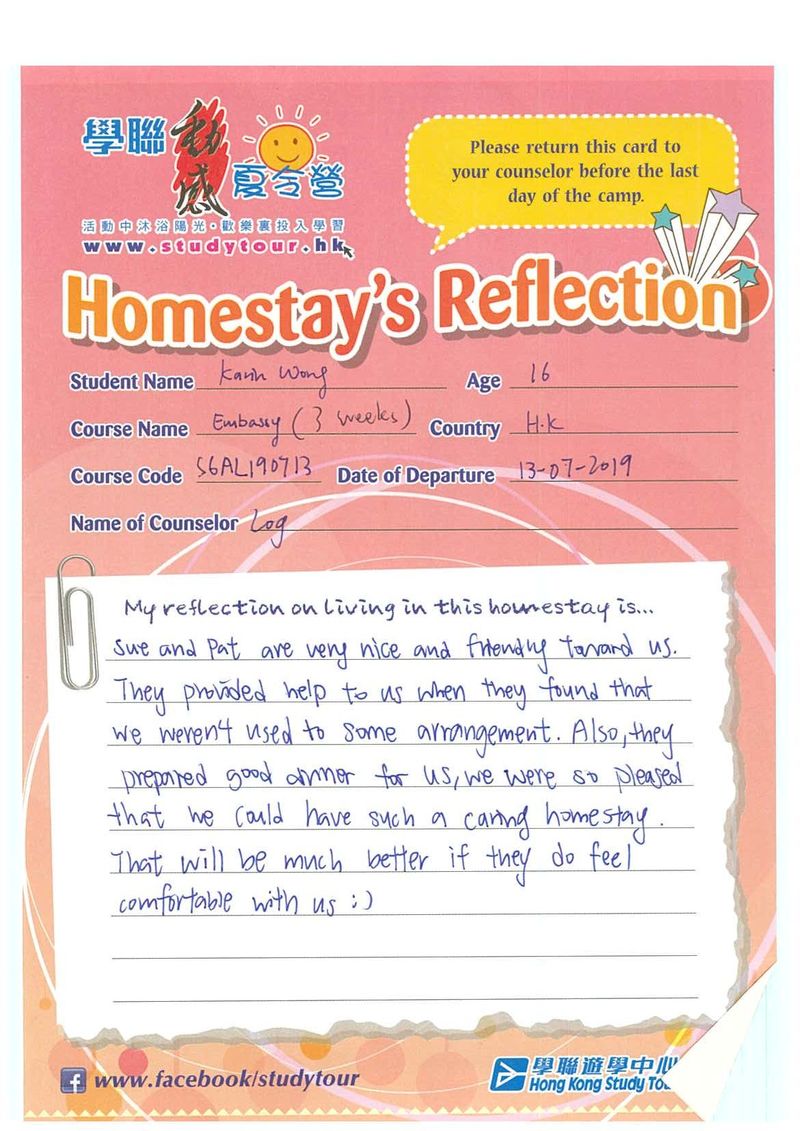 學聯 動感 夏令營
活動中沐浴陽光·歡樂裏投入學習
www.studytour.hk
Please return this card to
your counselor before the last
day of the camp.
Homestay's Reflection
Student Name Karin Wong Age 16
Course Name Embassy (3 weeks) Country H.K
Course Code S6AL190713 Date of Departure 13-07-2019
Name of Counselor Log
My reflection on living in this homestay is...
Sue and Pat are very nice and friendly toward us.
They provided help to us when they found that
we weren't used to some arrangement. Also, they
prepared good dinner for us, we were so pleased
that we could have such a caring homestay.
That will be much better if they do feel
comfortable with us :)
www.facebook/studytour
學聯遊學中心
Hong Kong Study Tou